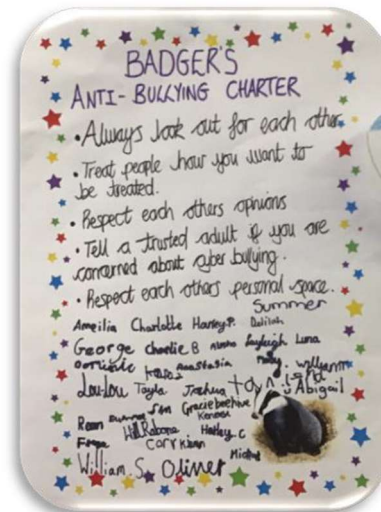 BADGER'S
ANTI-BULLYING CHARTER
• Always look out for each other
• Treat people how you want to
be treated.
• Respect each others opinions
• Tell a trusted adult if you are
concerned about cyber bullying.
• Respect each others personal space.
Summer
Ameilia Charlotte Harley P. Delilah
George charlie B Layleigh Luna
Anastasia Ruby. william
Lou-Lou Tayla Joshua Abigail
Gracie
Roan Harley.C
Freya
William S. Oliver Michael